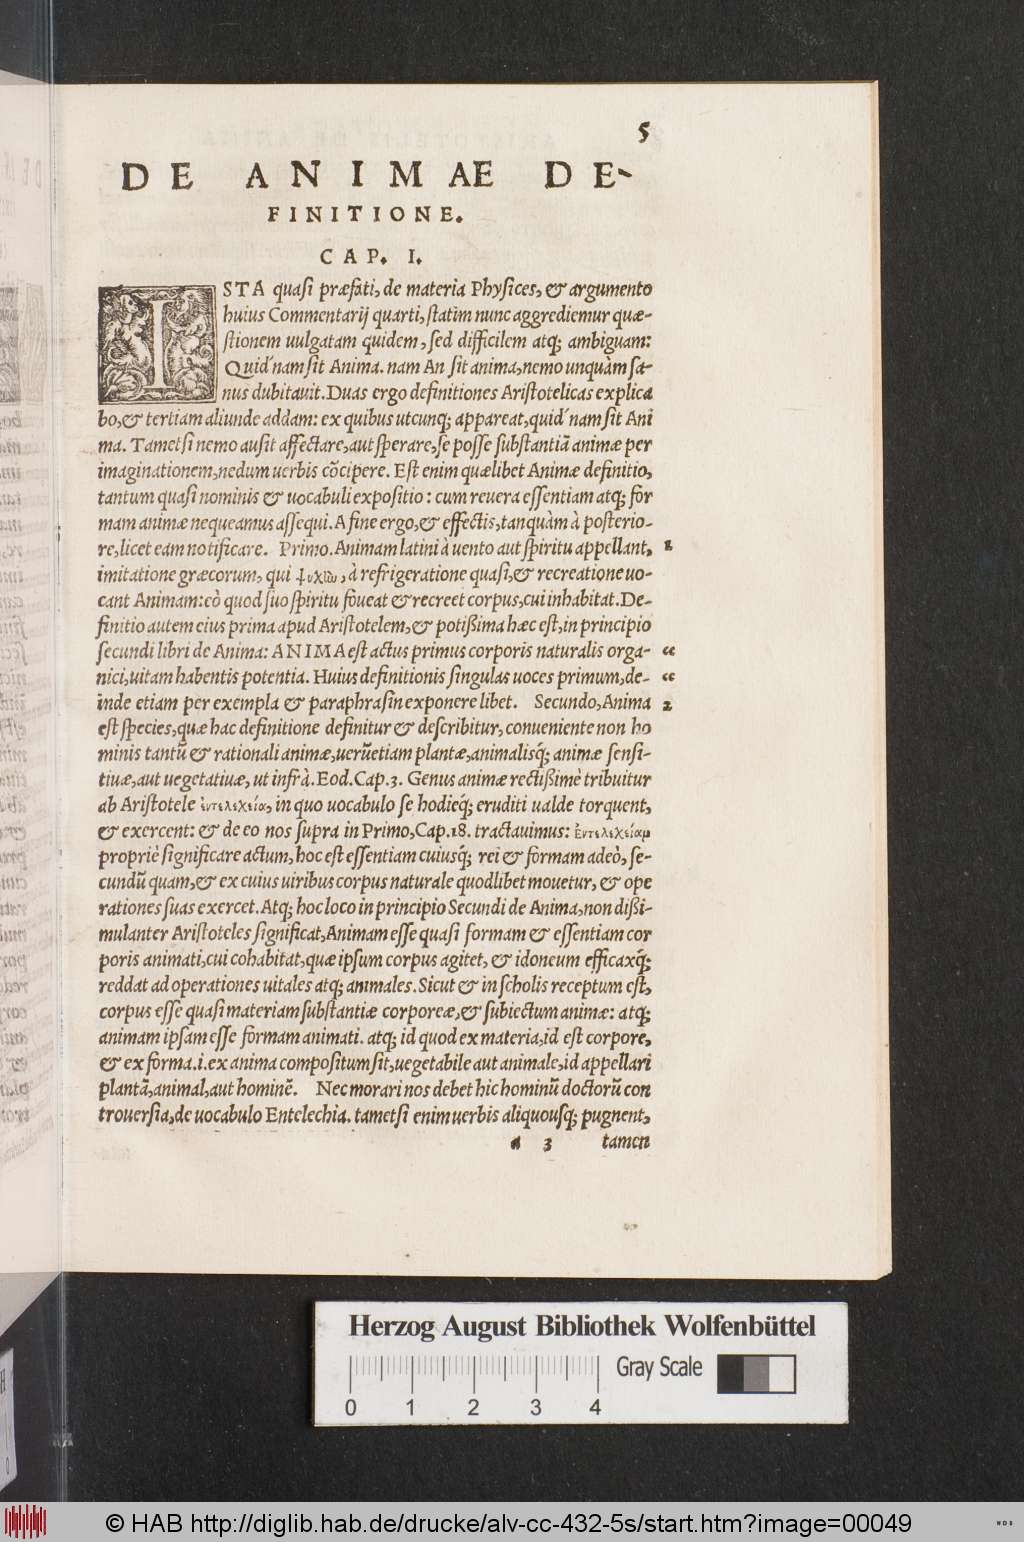 5
DE ANIMAE DE-
FINITIONE.
CAP. I.
ISTA quasi præfati, de materia Physices, & argumento
huius Commentarij quarti, statim nunc aggrediemur quæ-
stionem uulgatam quidem, sed difficilem atq; ambiguam:
Quid'nam sit Anima. nam An sit anima, nemo unquàm sa-
nus dubitauit. Duas ergo definitiones Aristotelicas explica
bo, & tertiam aliunde addam: ex quibus utcunq; appareat, quid'nam sit Ani
ma. Tametsi nemo ausit affectare, aut sperare, se posse substantiã animæ per
imaginationem, nedum uerbis cõcipere. Est enim quælibet Animæ definitio,
tantum quasi nominis & uocabuli expositio: cum reuera essentiam atq; for
mam animæ nequeamus assequi. A fine ergo, & effectis, tanquàm à posterio-
re, licet eam notificare. Primo. Animam latini à uento aut spiritu appellant, 1
imitatione græcorum, qui ψυχὶω, à refrigeratione quasi, & recreatione uo-
cant Animam: eò quod suo spiritu foueat & recreet corpus, cui inhabitat. De-
finitio autem eius prima apud Aristotelem, & potißima hæc est, in principio
secundi libri de Anima: ANIMA est actus primus corporis naturalis orga- “
nici, uitam habentis potentia. Huius definitionis singulas uoces primum, de- “
inde etiam per exempla & paraphrasin exponere libet. Secundo, Anima 2
est species, quæ hac definitione definitur & describitur, conueniente non ho
minis tantũ & rationali animæ, uerũetiam plantæ, animalisq́; animæ sensi-
tiuæ, aut uegetatiuæ, ut infrà. Eod. Cap. 3. Genus animæ rectißimè tribuitur
ab Aristotele ἐντελεχεία, in quo uocabulo se hodieq́; eruditi ualde torquent,
& exercent: & de eo nos supra in Primo, Cap. 18. tractauimus: Ἐντελεχείαμ
propriè significare actum, hoc est essentiam cuiusq́; rei & formam adeò, se-
cundũ quam, & ex cuius uiribus corpus naturale quodlibet mouetur, & ope
rationes suas exercet. Atq; hoc loco in principio Secundi de Anima, non dißi-
mulanter Aristoteles significat, Animam esse quasi formam & essentiam cor
poris animati, cui cohabitat, quæ ipsum corpus agitet, & idoneum efficaxq́;
reddat ad operationes uitales atq; animales. Sicut & in scholis receptum est,
corpus esse quasi materiam substantiæ corporeæ, & subiectum animæ: atq;
animam ipsam esse formam animati. atq; id quod ex materia, id est corpore,
& ex forma .i. ex anima compositum sit, uegetabile aut animale, id appellari
plantã, animal, aut hominẽ. Nec morari nos debet hic hominũ doctorũ con
trouersia, de uocabulo Entelechia. tametsi enim uerbis aliquousq; pugnent,
a 3 tamen
Herzog August Bibliothek Wolfenbüttel
Gray Scale
0 1 2 3 4
© HAB http://diglib.hab.de/drucke/alv-cc-432-5s/start.htm?image=00049
WDB